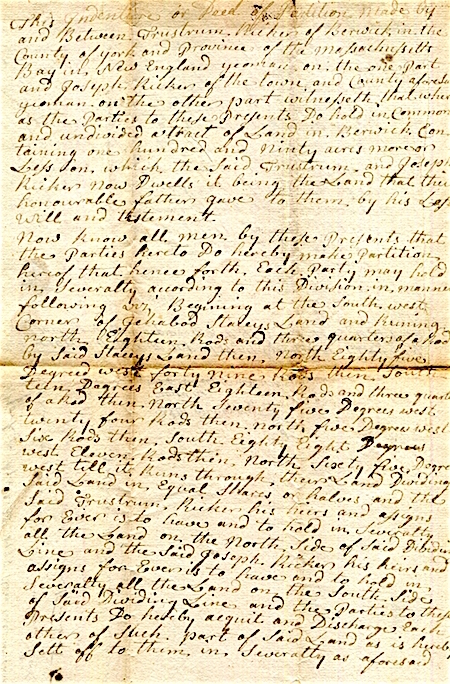 This Indenture or Deed of Partition Made by
and Between Trustrum Ricker of Berwick in the
County of york and Province of the Massachusetts
Bay in New England yeoman on the one Part
and Joseph Ricker of the town and County aforesd
yeoman on the other part witnesseth that where
as the Parties to these Presents Do hold in Common
and undivided a tract of Land in Berwick Con
taining one hundred and Ninty acres more or
Less on which the Said Trustrum and Joseph
Ricker Now Dwells it being the Land that their
honourable father gave to them by his Last
Will and testement
Now know all men by these Presents that
the Parties hereto Do hereby make Partition
hereof that hence forth Each Party may hold
in Severalty according to this Division in manner
following viz Begining at the South west
Corner of Staleys Land and Runing
north Eighteen Rods and three quarters of a Rod
by Said Staleys Land then North Eighty five
Degrees west forty Nine Rods then South
teen Dagrees East Eighteen Rods and three quarters
of a Rod then North Seventy five Degrees west
twenty four Rods then north five Degrees west
Six Rods then South Eighty Eight Degrees
west Eleven Rods then North Sixty five Degrees
west till it Runs through their Land Dividing
Said Land in Equal Shares or halves and the
Said Trustrum Ricker his heirs and asigns
for Ever is to have and to hold in Severalty
all the Land on the North Side of Said Dividing
Line and the Said Joseph Ricker his heirs and
assigns for Ever is to have and to hold in
Severalty all the Land on the South Side
of Said Dividing Line and the Parties to these
Presents Do hereby acquit and Discharge Each
other of Such part of Said Land as is hereby
Sett off to them in Severalty as aforesaid